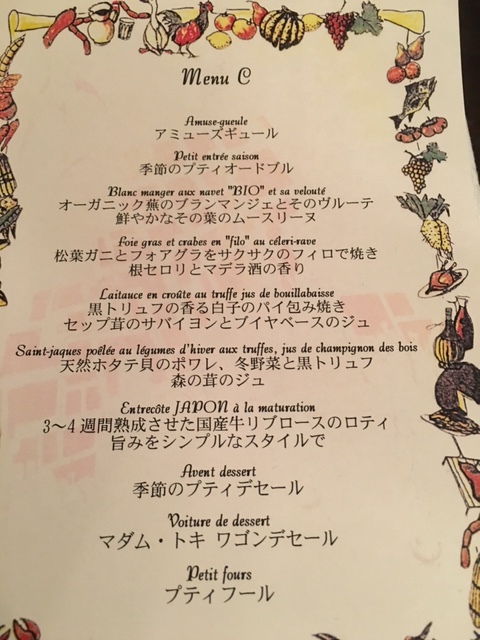 Menu C
Amuse-gueule
アミューズギュール
Petit entrée saison
季節のプティオードブル
Blanc manger aux navet "BIO" et sa velouté
オーガニック蕪のブランマンジェとそのヴルーテ
鮮やかなその葉のムースリーヌ
Foie gras et crabes en "filo" au céleri-rave
松葉ガニとフォアグラをサクサクのフィロで焼き
根セロリとマデラ酒の香り
Laitauce en croûte au truffe jus de bouillabaisse
黒トリュフの香る白子のパイ包み焼き
セップ茸のサバイヨンとブイヤベースのジュ
Saint-jaques poêlée au légumes d'hiver aux truffes, jus de champignon des bois
天然ホタテ貝のポワレ、冬野菜と黒トリュフ
森の茸のジュ
Entrecôte JAPON à la maturation
3〜4 週間熟成させた国産牛リブロースのロティ
旨みをシンプルなスタイルで
Avent dessert
季節のプティデセール
Voiture de dessert
マダム・トキ ワゴンデセール
Petit fours
プティフール